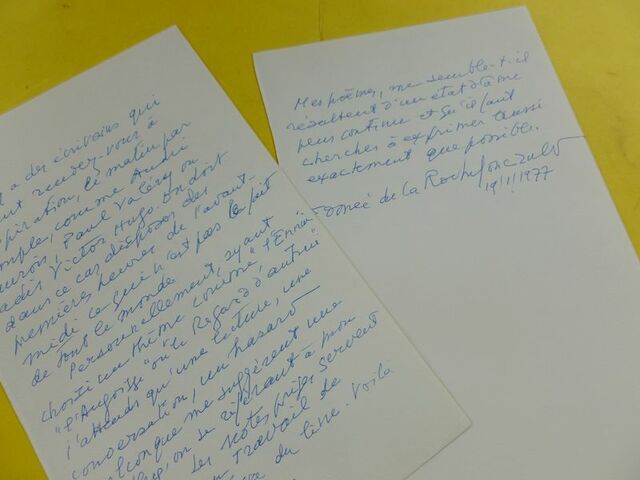 a des écrivains qui
rendez-vous à
le matin par
comme André
Paul Valéry ou
Victor Hugo. On doit
dans ce cas disposer des
premières heures de l'avant-
midi ce qui n'est pas le fait
de tout le monde.
Personnellement, ayant
choisi un thème comme "l'Ennui"
"l'Angoisse" ou "le Regard d'autrui"
j'attends qu'une lecture, une
conversation, un hasard
me suggèrent une
on se référant à mon
Les notes prises servent
travail de
du livre. Voilà
Mes poèmes, me semble-t-il
résultent d'un état d'âme
continu et qu'il faut
chercher à exprimer aussi
exactement que possible.
de La Rochefoucauld
19/1/1977